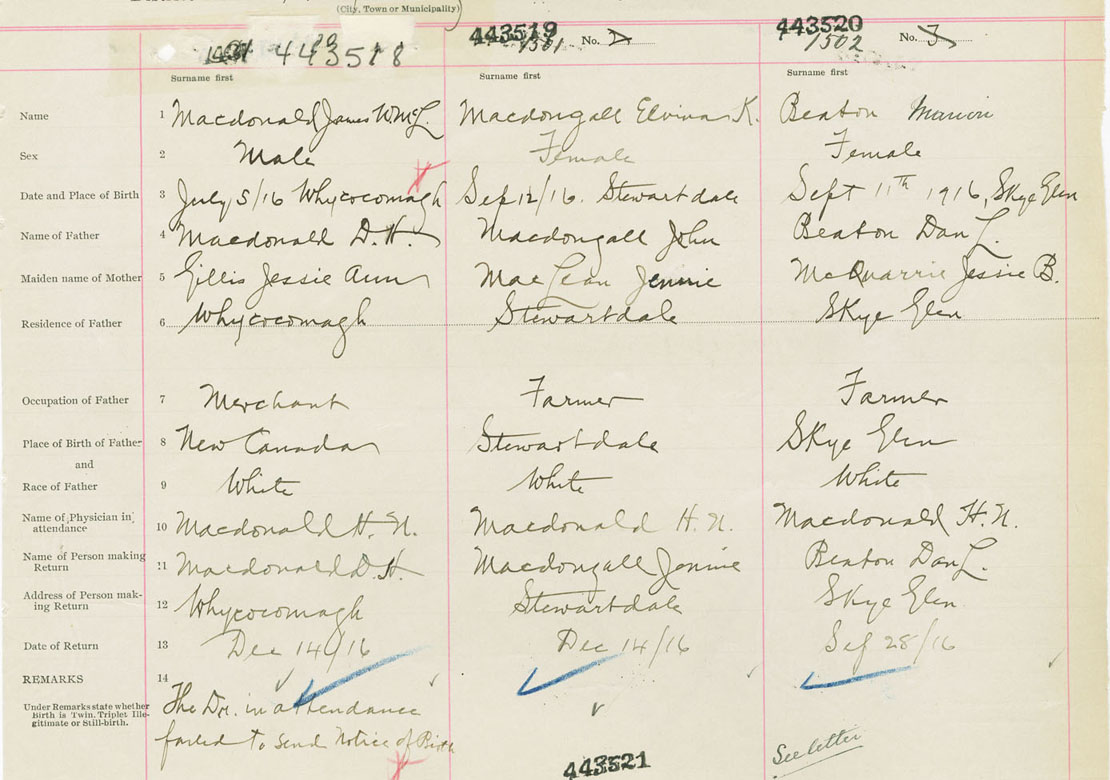 (City, Town or Municipality)
443518 443519 1501 No. 2 443520 1502 No. 3
Surname first Surname first Surname first
Name 1 Macdonald James Wm L. Macdongall Elvina K. Beaton Marion
Sex 2 Male Female Female
Date and Place of Birth 3 July 5/16 Whycocomagh Sep 12/16. Stewartdale Sept 11th 1916, Skye Glen
Name of Father 4 Macdonald D. H. Macdongall John Beaton Dan L.
Maiden name of Mother 5 Gillis Jessie Ann MacLean Jennie McQuarrie Jessie B.
Residence of Father 6 Whycocomagh Stewartdale Skye Glen
Occupation of Father 7 Merchant Farmer Farmer
Place of Birth of Father 8 New Canada Stewartdale Skye Glen
and
Race of Father 9 White White White
Name of Physician in attendance 10 Macdonald H. N. Macdonald H. N. Macdonald H. N.
Name of Person making Return 11 Macdonald D. H. Macdongall Jennie Beaton Dan L.
Address of Person making Return 12 Whycocomagh Stewartdale Skye Glen
Date of Return 13 Dec 14/16 Dec 14/16 Sep 28/16
REMARKS 14
Under Remarks state whether Birth is Twin, Triplet Illegitimate or Still-birth.
The Dr. in attendance
failed to send Notice of Birth
See letter
443521